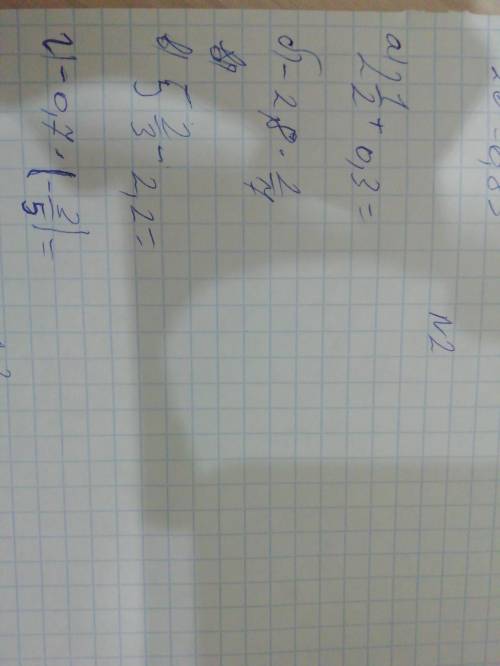 N2
а) 2 1/2 + 0,3 =
б) - 2,8 · 2/7
в) 5 2/3 - 2,2 =
г) - 0,7 · (- 2/5) =